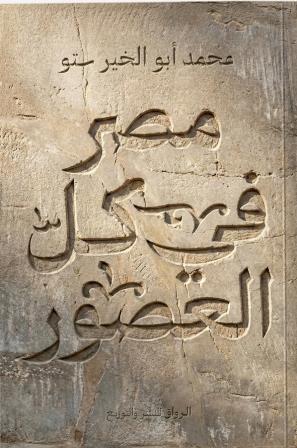 محمد أبو الخير ستو
مصر
في كلّ
العصور
الرواق للنشر والتوزيع